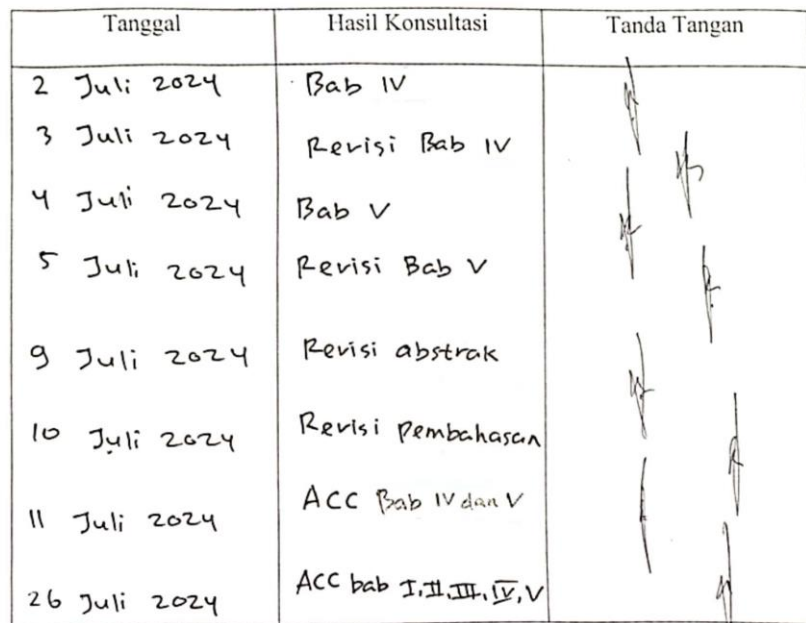 Tanggal Hasil Konsultasi Tanda Tangan
2 Juli 2024 Bab IV
3 Juli 2024 Revisi Bab IV
4 Juli 2024 Bab V
5 Juli 2024 Revisi Bab V
9 Juli 2024 Revisi abstrak
10 Juli 2024 Revisi Pembahasan
11 Juli 2024 ACC Bab IV dan V
26 Juli 2024 ACC bab I, II, III, IV, V